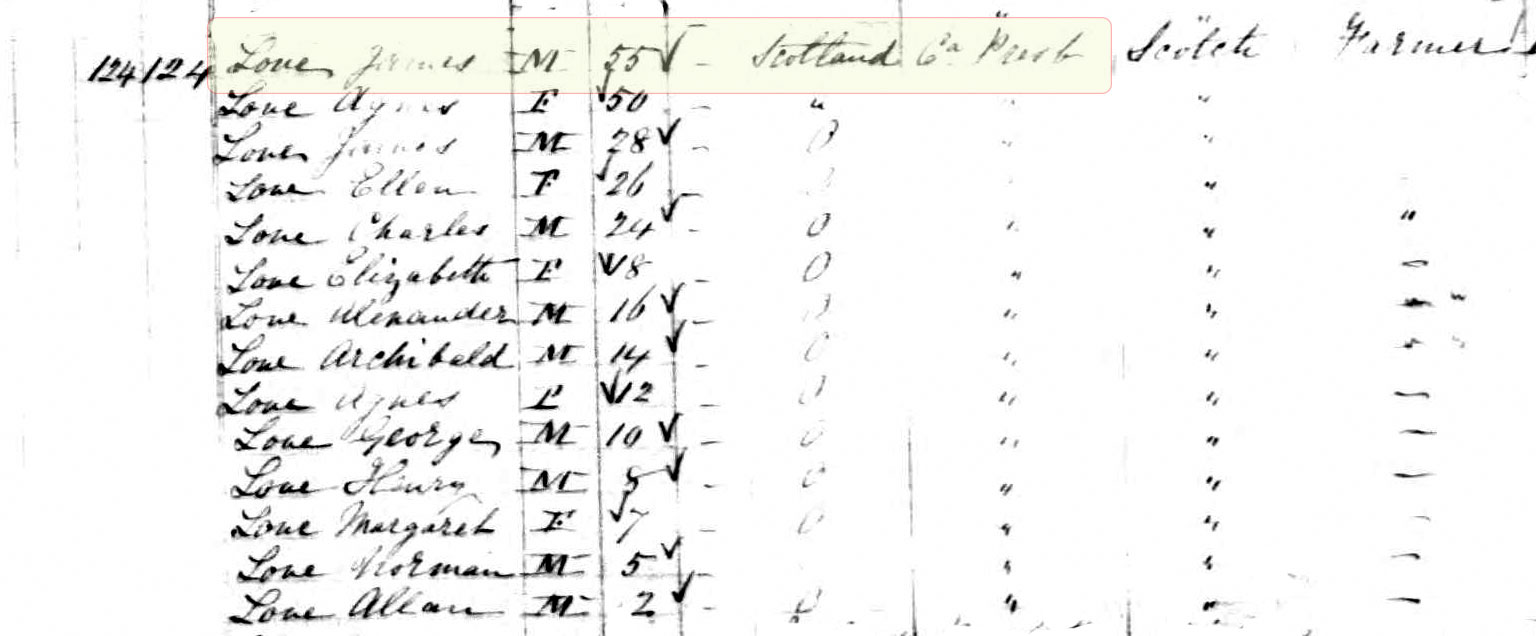 124 124 Love James M 55 - Scotland Ca Presb Scotch Farmer
Love Agnes F 50 - " " "
Love James M 28 - O " "
Love Ellen F 26 - "
Love Charles M 24 - O " " "
Love Elizabeth F 18 - O " " -
Love Alexander M 16 - O " " - "
Love Archibald M 14 - O " " "
Love Agnes F 12 - O " " -
Love George M 10 - O " " -
Love Henry M 8 - O " " -
Love Margaret F 7 - O " " -
Love Norman M 5 - " " -
Love Allan M 2 - O " " -